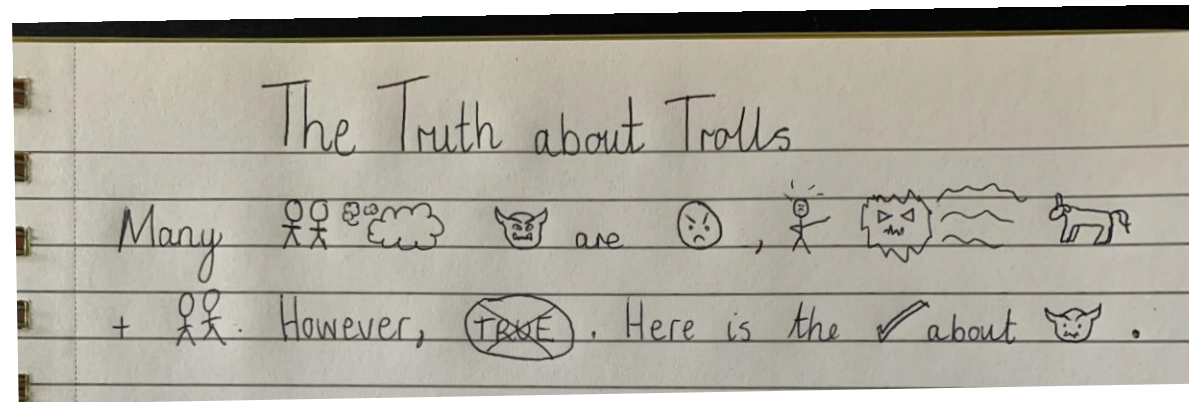 The Truth about Trolls
Many are ,
+ . However, TRUE . Here is the ✓ about .